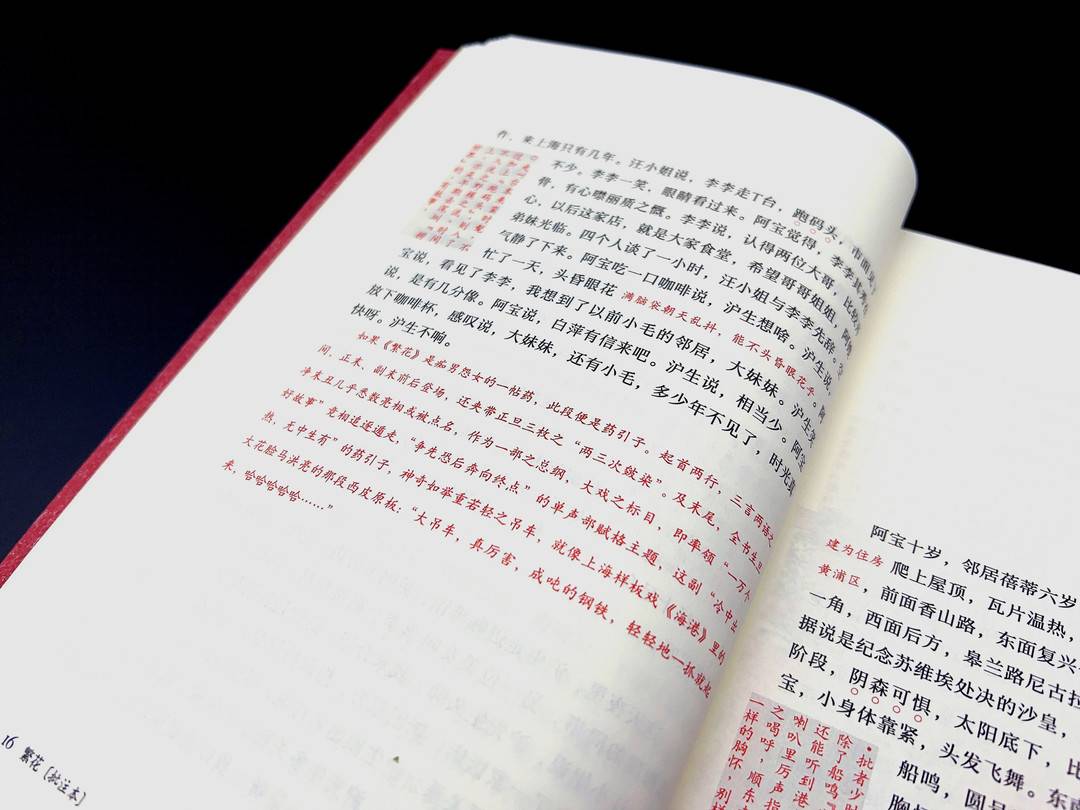 作，来上海只有几年。汪小姐说，李李走T台，跑码头，市面见
不少。李李一笑，眼睛看过来。阿宝觉得，李李其
骨，有心噤丽质之慨。李李说，认得两位大哥，比较
心，以后这家店，就是大家食堂，希望哥哥姐姐，阿
弟妹光临。四个人谈了一小时，汪小姐与李李先辞。
气静了下来。阿宝吃一口咖啡说，沪生想啥。沪生说，
忙了一天，头昏眼花 满脑袋朝天乱抖，能不头昏眼花乎。阿
宝说，看见了李李，我想到了以前小毛的邻居，大妹妹。沪生笑
说，是有几分像。阿宝说，白萍有信来吧。沪生说，相当少。阿宝
放下咖啡杯，感叹说，大妹妹，还有小毛，多少年不见了，时光真
快呀。沪生不响。
如果《繁花》是痴男怨女的一帖药，此段便是药引子。起首两行，三言两语之
间，正末、副末前后登场，还夹带正旦三枚之“两三次皴染”。及末尾，全书生旦
净末丑几乎悉数亮相或被点名，作为一部之总纲，大戏之标目，即率领“一万个
好故事”竞相追逐通走，“争先恐后奔向终点”的单声部赋格主题，这副“冷中出
热，无中生有”的药引子，神奇如举重若轻之吊车，就像上海样板戏《海港》里的
大花脸马洪亮的那段西皮原板：“大吊车，真厉害，成吨的钢铁，轻轻地一抓就起
来，哈哈哈哈哈……”
16 繁花〔批注本〕
阿宝十岁，邻居蓓蒂六岁
建为住房
爬上屋顶，瓦片温热，
黄浦区，前面香山路，东面复兴
一角，西面后方，皋兰路尼古拉
据说是纪念苏维埃处决的沙皇，
阶段，阴森可惧，太阳底下，比
宝，小身体靠紧，头发飞舞。东
船鸣，圆
胸
·批者少时
除了船鸣
还能听到
喇叭里厉声指
之喝呼，顺东
一样的胸怀，别样